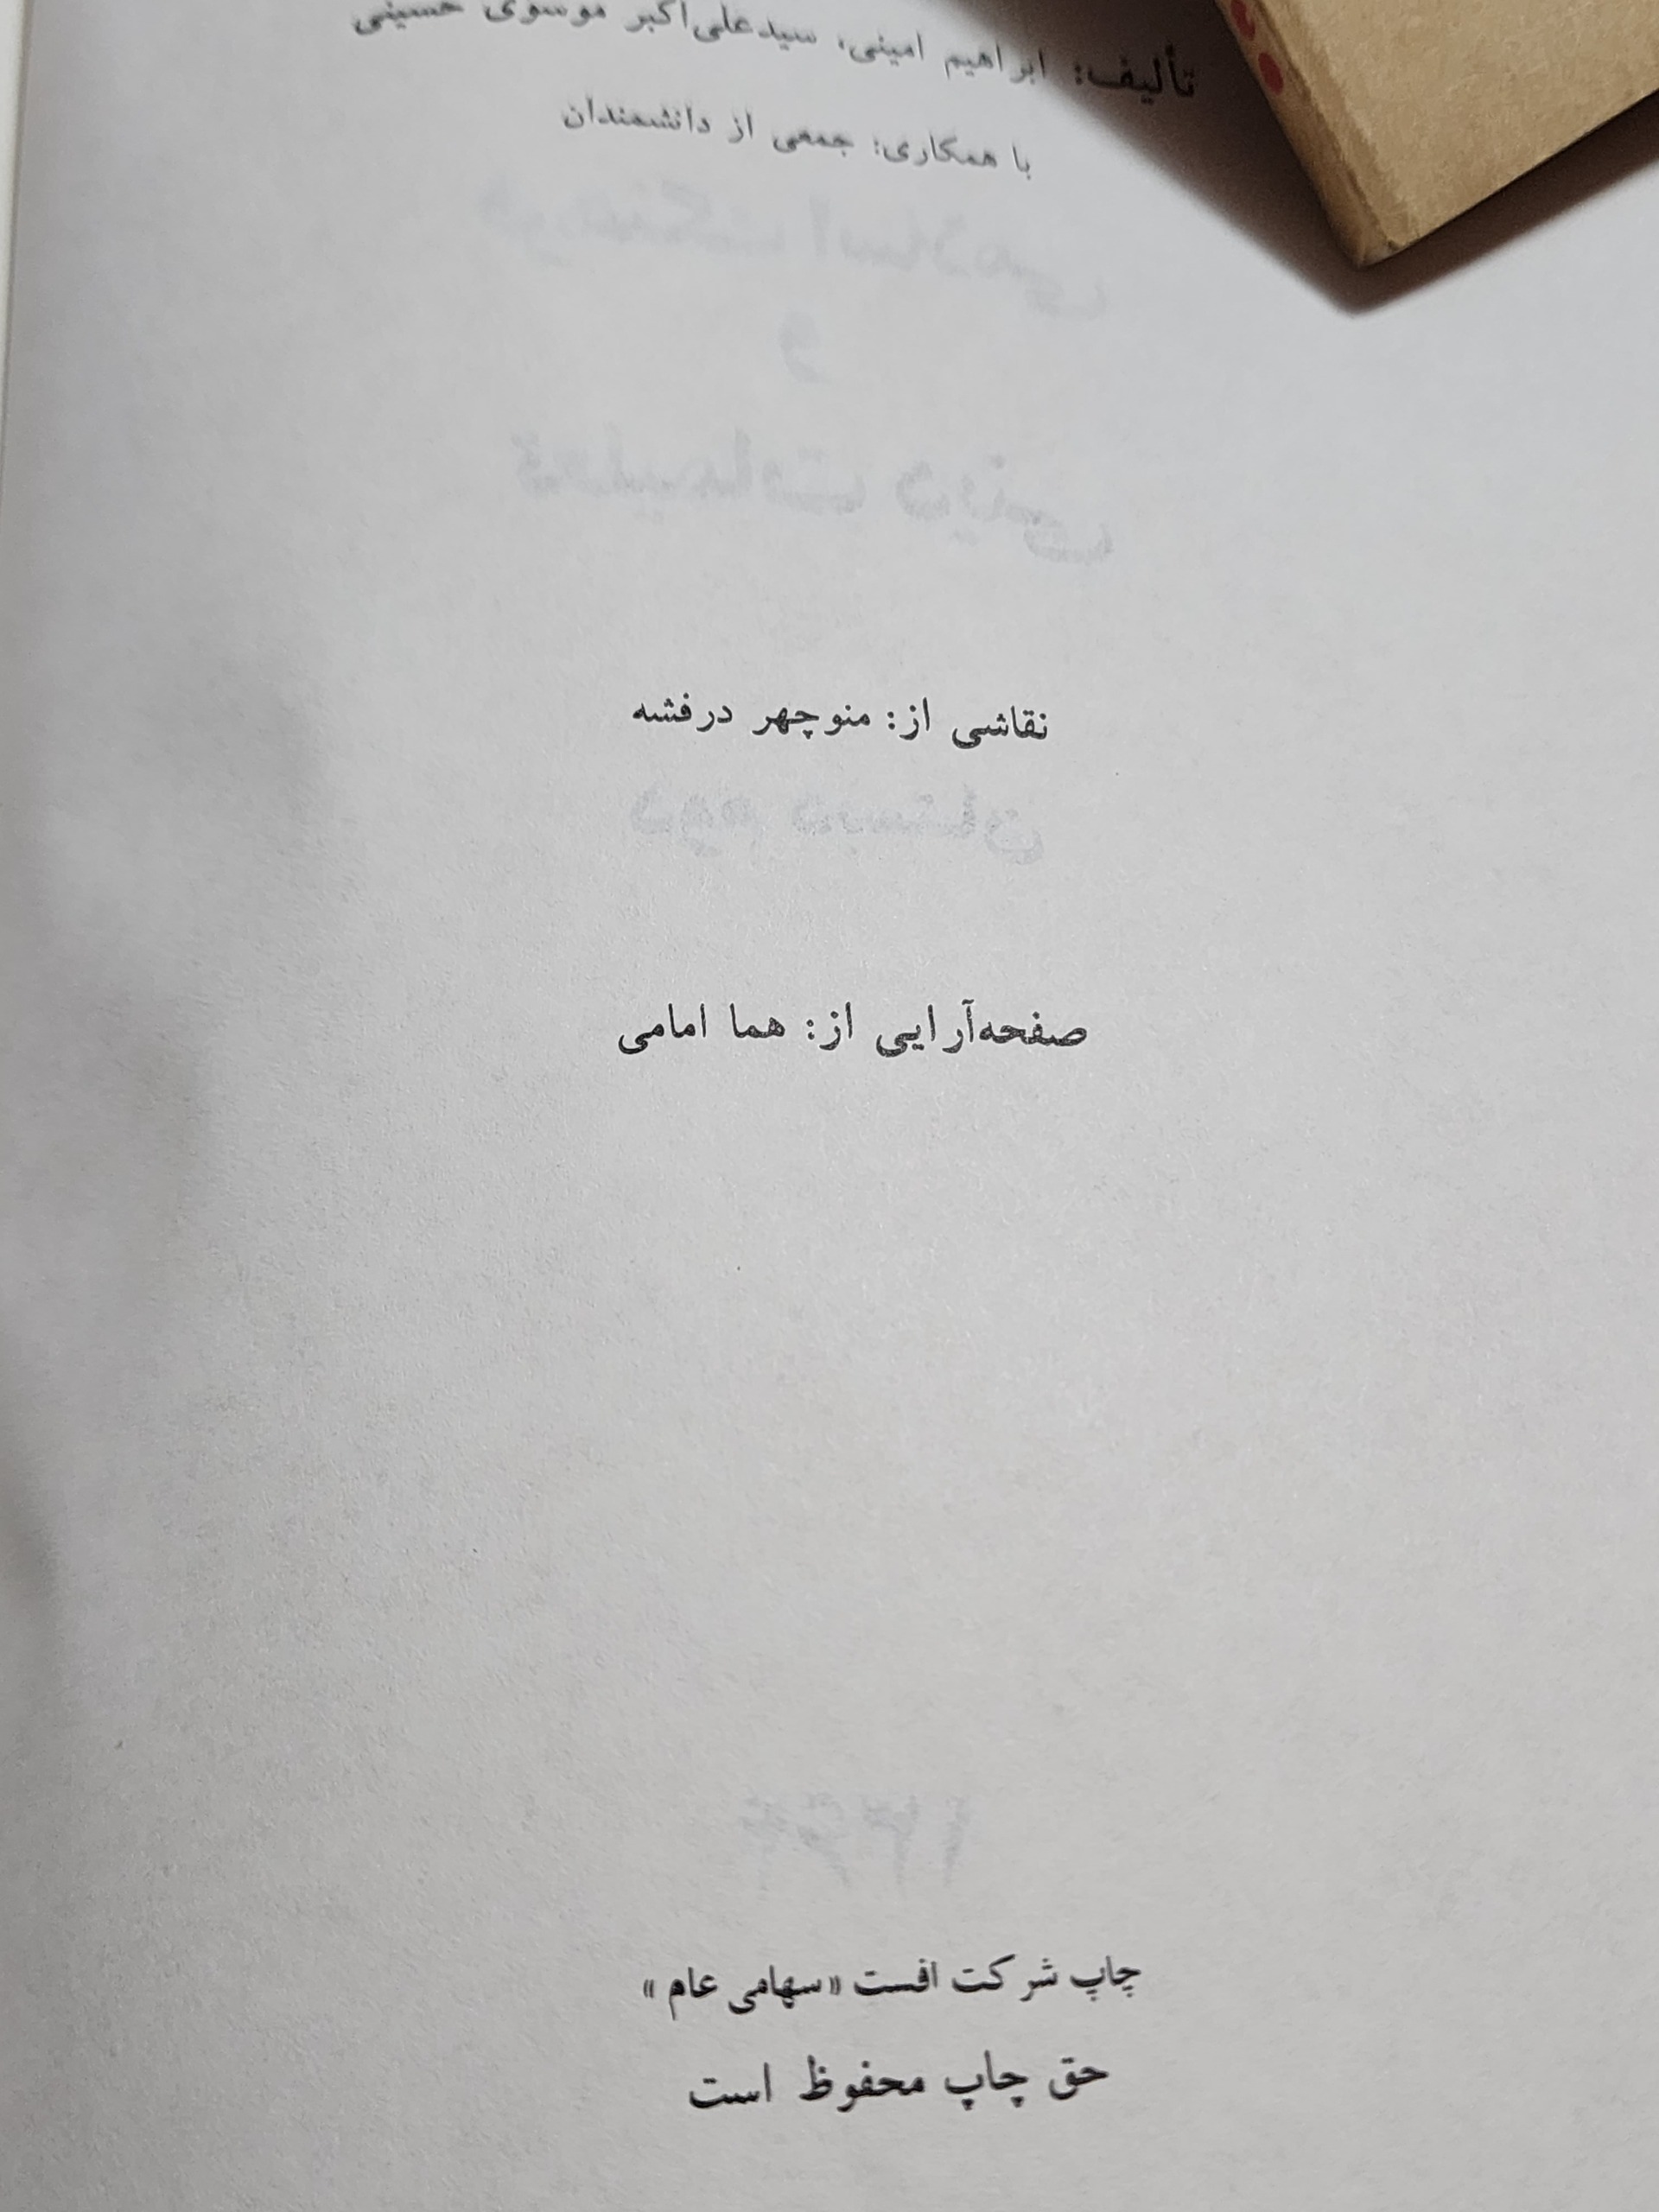 تألیف: ابراهیم امینی، سیدعلی‌اکبر موسوی حسینی
با همکاری: جمعی از دانشمندان
فرهنگ اسلامی
و
تعلیمات دینی
نقاشی از: منوچهر درفشه
دوم دبستان
صفحه‌آرایی از: هما امامی
چاپ شرکت افست «سهامی عام»
حق چاپ محفوظ است